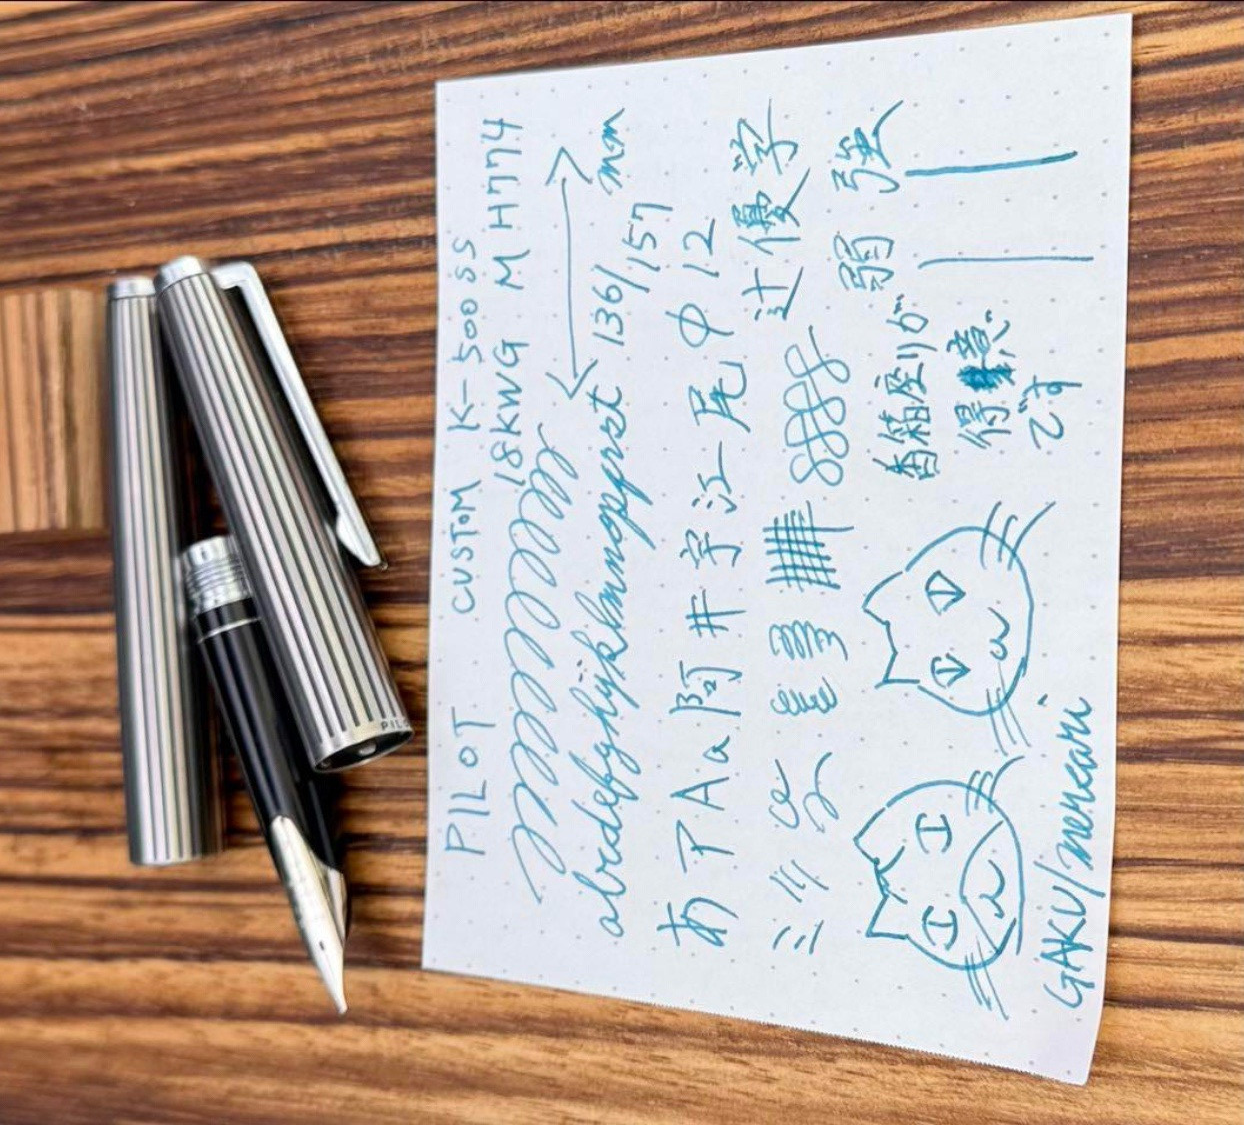 PILOT CUSTOM K-500SS
18KWG M H774
abcdefghijklmnopqrst 136/157 mm
あ ア A a 阿 井 宇 江 尾 φ 12
ミ 辻 優 学
弱 強
香箱座りが
得意
です
GAKU/mercari
PILO